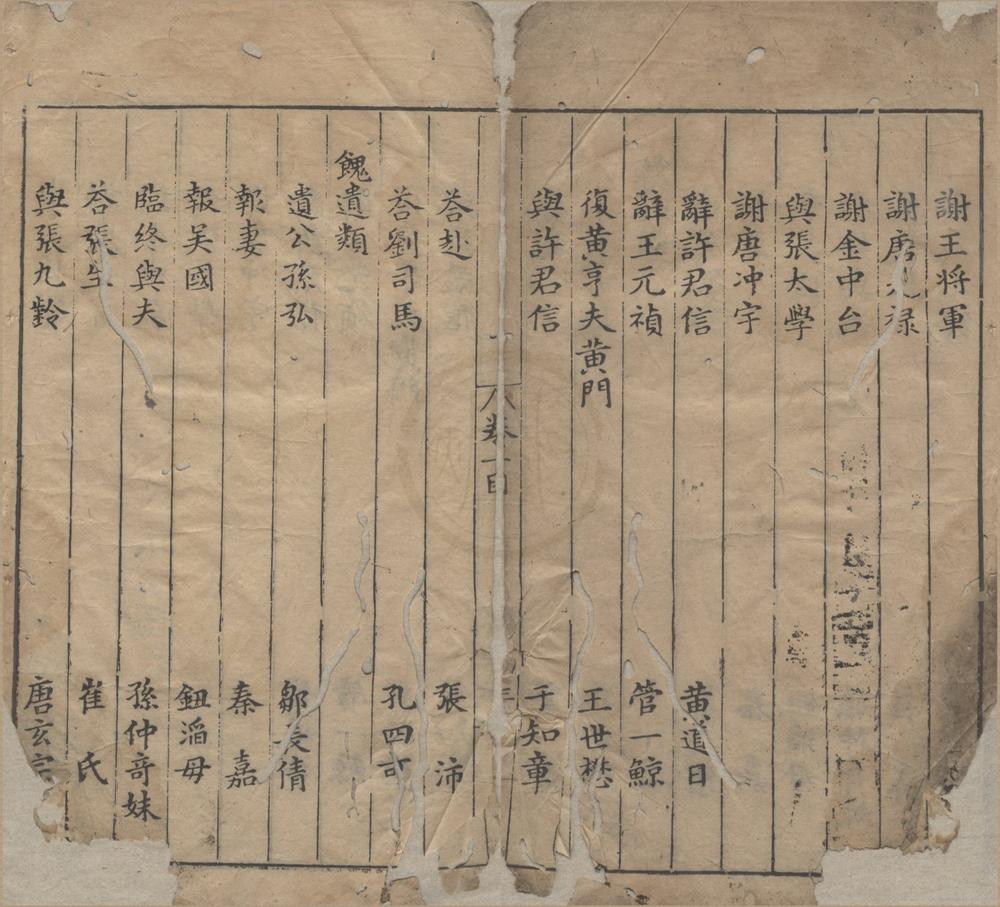 謝王将軍
謝唐光禄
謝金中台
與張太學
謝唐冲宇
辭許君信 黄道日
辭王元禎 管一鯨
復黄亨夫黄門 王世懋
與許君信 于知章
八卷一目
荅赴 張沛
荅劉司馬 孔四可
餽遺類
遺公孫弘 鄒長倩
報妻 秦嘉
報吴國 鈕滔母
臨終與夫 孫仲奇妹
荅張生 崔氏
與張九齡 唐玄宗